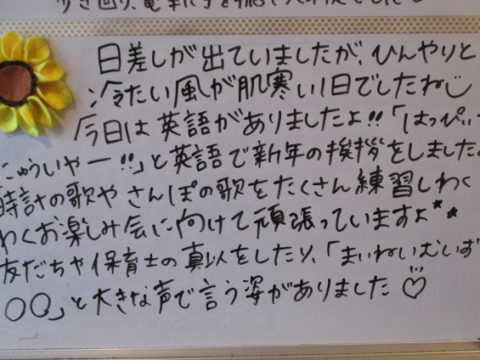 日差しが出ていましたが、ひんやりと
冷たい風が肌寒い1日でしたね
今日は英語がありましたよ!!「はっぴぃ
にゅういやー!!」と英語で新年の挨拶をしました
時計の歌や さんぽの歌をたくさん練習しわく
わくお楽しみ会に向けて頑張っていますよ
友だちや保育士の真似をしたり、「まいねいむいず
〇〇」と大きな声で言う姿がありました♡